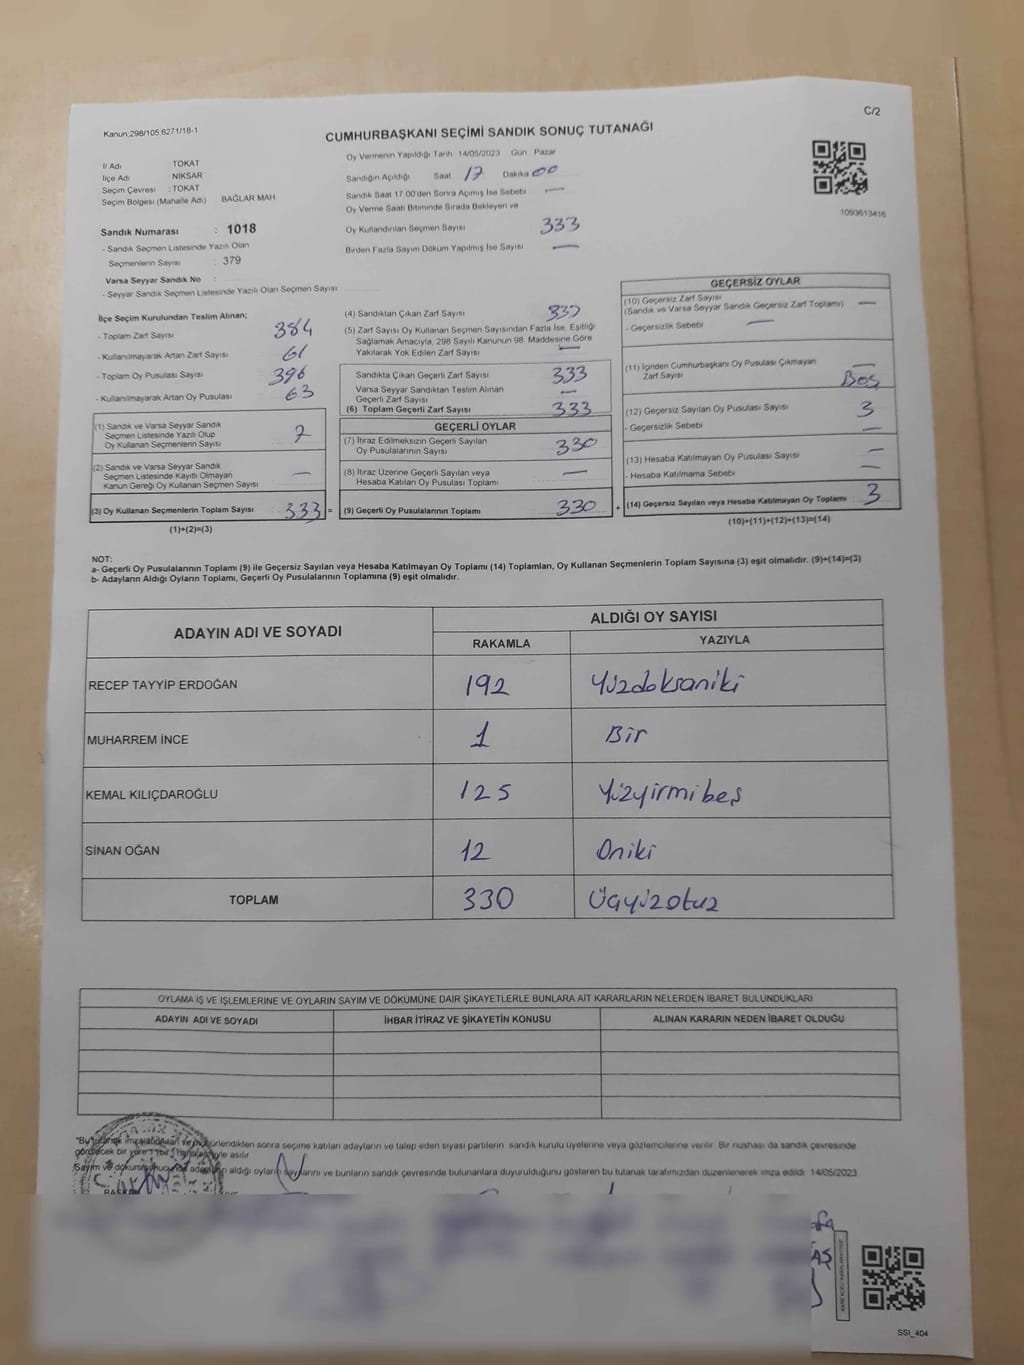 C/2
Kanun;298/105,6271/18-1
CUMHURBAŞKANI SEÇİMİ SANDIK SONUÇ TUTANAĞI
İl Adı TOKAT
İlçe Adı NİKSAR
Seçim Çevresi : TOKAT
Seçim Bölgesi (Mahalle Adı) BAĞLAR MAH
Sandık Numarası : 1018
- Sandık Seçmen Listesinde Yazılı Olan
Seçmenlerin Sayısı : 379
Varsa Seyyar Sandık No :
- Seyyar Sandık Seçmen Listesinde Yazılı Olan Seçmen Sayısı:
Oy Vermenin Yapıldığı Tarih 14/05/2023 Gün : Pazar
Sandığın Açıldığı Saat 17 Dakika 00
Sandık Saat 17.00'den Sonra Açımış İse Sebebi —
Oy Verme Saati Bitiminde Sırada Bekleyen ve
Oy Kullandırılan Seçmen Sayısı 333
Birden Fazla Sayım Döküm Yapılmış İse Sayısı —
1093613416
İlçe Seçim Kurulundan Teslim Alınan;
- Toplam Zarf Sayısı 384
- Kullanılmayarak Artan Zarf Sayısı 61
- Toplam Oy Pusulası Sayısı 396
- Kullanılmayarak Artan Oy Pusulası 63
(1) Sandık ve Varsa Seyyar Sandık
Seçmen Listesinde Yazılı Olup
Oy Kullanan Seçmenlerin Sayısı
(2) Sandık ve Varsa Seyyar Sandık
Seçmen Listesinde Kayıtlı Olmayan
Kanun Gereği Oy Kullanan Seçmen Sayısı —
(3) Oy Kullanan Seçmenlerin Toplam Sayısı 333 =
(1)+(2)=(3)
(4) Sandıktan Çıkan Zarf Sayısı
(5) Zarf Sayısı Oy Kullanan Seçmen Sayısından Fazla İse, Eşitliği
Sağlamak Amacıyla, 298 Sayılı Kanunun 98. Maddesine Göre
Yakılarak Yok Edilen Zarf Sayısı —
Sandıkta Çıkan Geçerli Zarf Sayısı 333
Varsa Seyyar Sandıktan Teslim Alınan
Geçerli Zarf Sayısı —
(6) Toplam Geçerli Zarf Sayısı 333
GEÇERLİ OYLAR
(7) İtiraz Edilmeksizin Geçerli Sayılan
Oy Pusulalarının Sayısı 330
(8) İtiraz Üzerine Geçerli Sayılan veya
Hesaba Katılan Oy Pusulası Toplamı —
(9) Geçerli Oy Pusulalarının Toplamı 330 +
GEÇERSİZ OYLAR
(10) Geçersiz Zarf Sayısı
(Sandık ve Varsa Seyyar Sandık Geçersiz Zarf Toplamı) —
- Geçersizlik Sebebi —
(11) İçinden Cumhurbaşkanı Oy Pusulası Çıkmayan
Zarf Sayısı —
Boş
(12) Geçersiz Sayılan Oy Pusulası Sayısı 3
- Geçersizlik Sebebi —
(13) Hesaba Katılmayan Oy Pusulası Sayısı —
- Hesaba Katılmama Sebebi —
(14) Geçersiz Sayılan veya Hesaba Katılmayan Oy Toplamı 3
(10)+(11)+(12)+(13)=(14)
NOT:
a- Geçerli Oy Pusulalarının Toplamı (9) ile Geçersiz Sayılan veya Hesaba Katılmayan Oy Toplamı (14) Toplamları, Oy Kullanan Seçmenlerin Toplam Sayısına (3) eşit olmalıdır. (9)+(14)=(3)
b- Adayların Aldığı Oyların Toplamı, Geçerli Oy Pusulalarının Toplamına (9) eşit olmalıdır.
ADAYIN ADI VE SOYADI
ALDIĞI OY SAYISI
RAKAMLA YAZIYLA
RECEP TAYYİP ERDOĞAN 192 Yüzdoksaniki
MUHARREM İNCE 1 Bir
KEMAL KILIÇDAROĞLU 125 Yüzyirmibeş
SİNAN OĞAN 12 Oniki
TOPLAM 330 Üçyüzotuz
OYLAMA İŞ VE İŞLEMLERİNE VE OYLARIN SAYIM VE DÖKÜMÜNE DAİR ŞİKAYETLERLE BUNLARA AİT KARARLARIN NELERDEN İBARET BULUNDUKLARI
ADAYIN ADI VE SOYADI İHBAR İTİRAZ VE ŞİKAYETİN KONUSU ALINAN KARARIN NEDEN İBARET OLDUĞU
sonra seçime katılan adayların ve talep eden siyasi partilerin sandık kurulu üyelerine veya gözlemcilerine verilir. Bir nüshası da sandık çevresinde
görülecek bir yere asılır
Sayım ve aldığı oyların sayılarını ve bunların sandık çevresinde bulunanlara duyurulduğunu gösteren bu tutanak tarafımızdan düzenlenerek imza edildi 14/05/2023
SSI_404